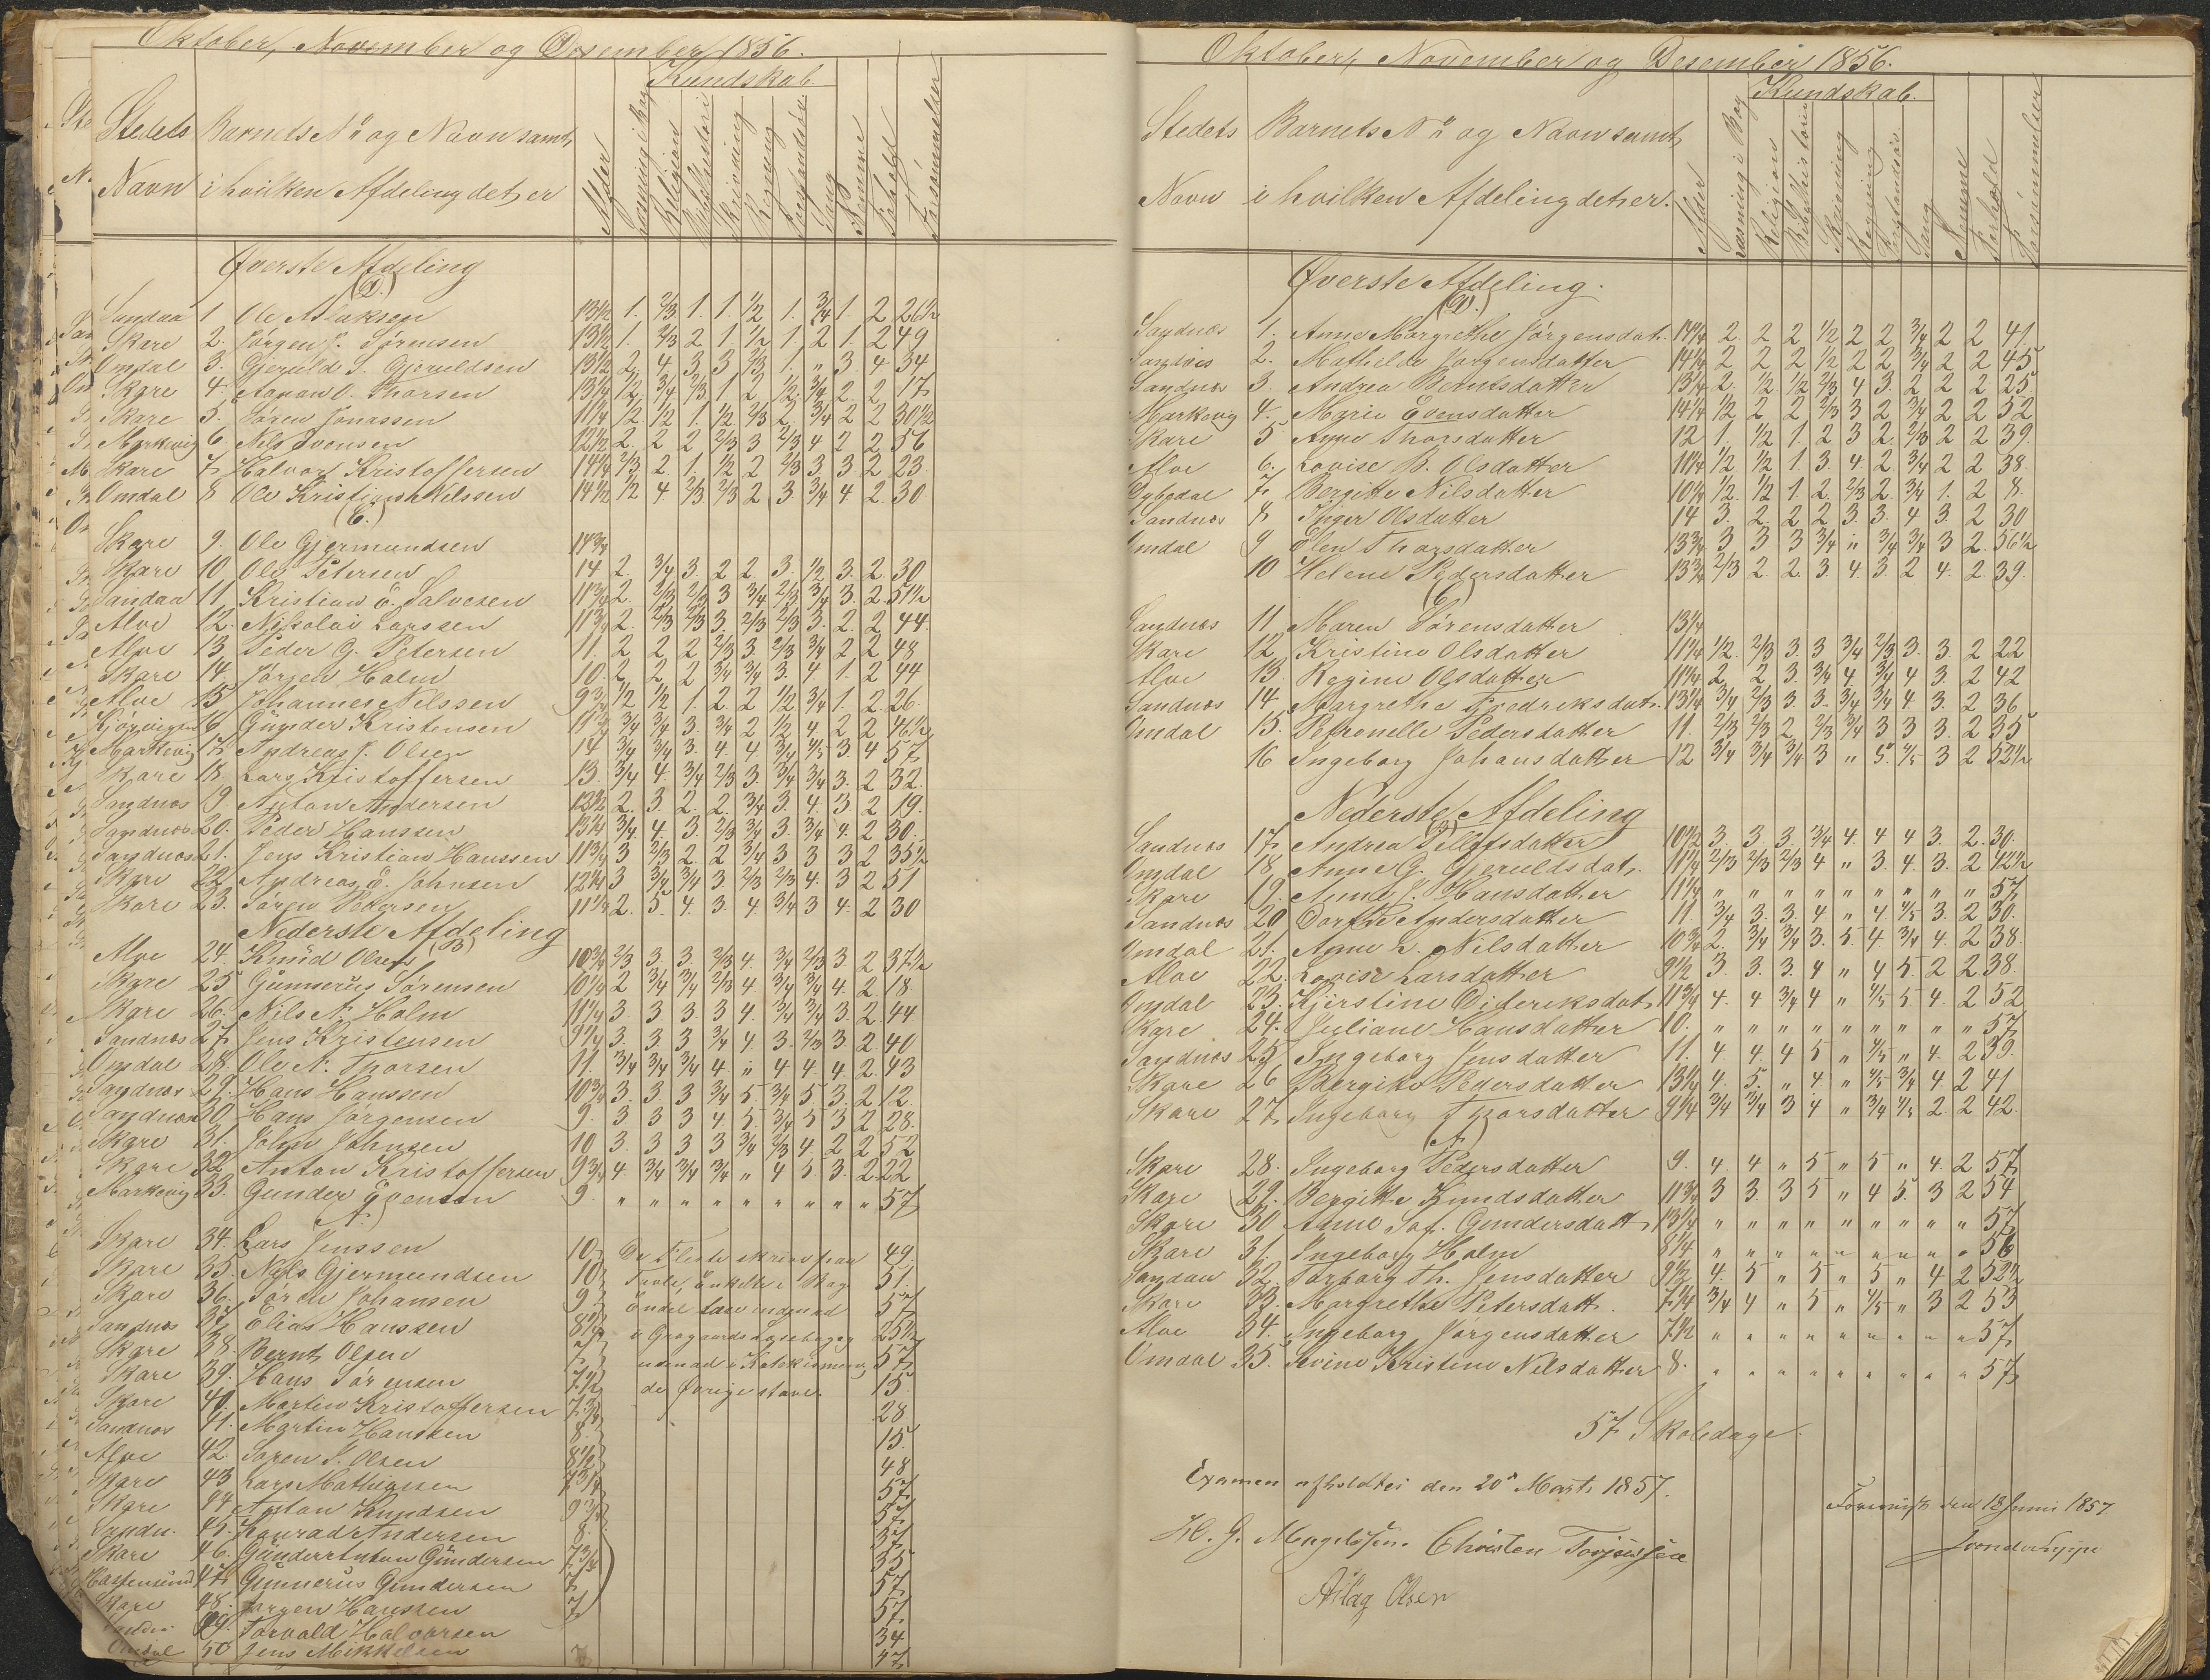 Oktober, November og Desember 1856.
Kundskab
Stedets Barnets No og Navn samt
Navn i hvilken Afdeling det er
Alder
Læsning i Bog
Religion
Bibelhistorie
Skrivning
Regning
Sang
Nemme
Forhold
Forsømmelser
Øverste Afdeling
Sandaa 1 Ole Aslaksen 13½ 1. 2/3 1. 1. ½ 1. ¾ 1. 2 26½
Skare 2. Jørgen J. Sørensen 13½ 1. 2/3 2 1. ½ 1 2 1. 2 49
Omdal 3. Gjeruld S. Gjeruldsen 13½ 2 4 3 3 2/3 1. " 3. 4 34
Skare 4. Aanon O. Thorsen 13¼ ½ ¾ 2/3 1 2 ½ ¾ 2 2 17
Skare 5. Søren Jonassen 11¼ ½ ½ 1. ½ 2/3 2 ¾ 2 2 30½
Markevig 6. Nils Evensen 12½ 2. 2 2 2/3 3 2/3 4 2 2 56
Skare 7 Halvor Kristoffersen 14¼ 2/3 2. 1. ½ 2 2/3 3. 3 2 23.
Omdal 8 Ole Kristian Nilssen 14½ ½ 4 2/3 2/3 2 3 ¾ 4 2. 30
(C.)
Skare 9. Ole Gjermundsen 14¾
Skare 10. Ole Petersen 14 2 ¾ 3. 2 2. 3. ½ 3. 2. 30
Sandaa 11. Kristian E. Salvesen 11¾ 2. 2/3 2/3 3 ¾ 2/3 ¾ 3. 2. 51½
Alve 12. Nikolai Larssen 11¾ 2. 2/3 2/3 3. 2/3 2/3 3. 2. 2 44.
Alve 13. Peder G. Petersen 11. 2 2 2 2/3 3. 2/3 ¾ 2 2 48
Skare 14. Jørgen Holm 10. 2 2 2 ¾ ¾ 3. 4 1. 2 44
Alve 15 Johannes Nilssen 9¾ ½ ½ 1. 2. 2 ½ ¾ 1. 2. 26.
16 Gunder Kristensen 11¾ ¾ ¾ 3. ¾ 2 ½ 4. 2 2 46½
Markevig 17. Andreas J. Olsen 14 ¾ ¾ 3. 4. 4 ¾ 4/5 3. 4 57
Skare 18. Lars Kristoffersen 13. ¾ 4. ¾ 2/3 3 ¾ ¾ 3. 2 32.
Sandnæs 19. Anton Andersen 12½ 2. 3. 2. 2. ¾ 3. 4. 3. 2 19.
Sandnæs 20. Peder Hanssen 13¼ ¾ 4. 3. 2/3 ¾ 3. ¾ 4. 2 30.
Sandnæs 21. Jens Kristian Hanssen 11¾ 3 2/3 2. 2 ¾ 3 3 3 2 35½
Skare 22. Andreas E. Johnsen 12¼ 3 ¾ ¾ 3 2/3 2/3 4. 3 2 51
Skare 23. Søren Pedersen 11¼ 2. 5. 4. 3. 4. ¾ 3 4. 2 30
Nederste Afdeling
(B)
Alve 24. Knud Olsen 10¾ 2/3 3. 3. 2/3 4. ¾ 2/3 3 2 37½
Skare 25 Gunnerus Sørensen 10¼ 2 ¾ ¾ 2/3 4 ¾ ¾ 4. 2. 18.
Skare 26. Nils A. Holm 11¼ 3. 3 3. 3 4. ¾ ¾ 3. 2 44
Sandnæs 27 Jens Kristensen 9¼ 3. 3 3 ¾ 4. 3. 2/3 3 2 40
Omdal 28. Ole N. Thorsen 11. ¾ ¾ ¾ 4. " 4 4. 4. 2. 43
Sandnæs 29. Hans Hanssen 10¾ 3. 3. 3 ¾ 5. ¾ 5 3. 2. 12.
Sandnæs 30 Hans Jørgensen 9. 3 3 3 4. 5. ¾ 5 3 2 28.
Skare 31. John Johnsen 10 3. 3 3 3 ¾ 2/3 4. 2 2 52
Skare 32 Anton Kristoffersen 9¾ 4. ¾ ¾ ¾ " 4 5. 3. 2. 22
Markevig 33. Gunder Evensen 9. " " " " " " " " " 57
Skare 34. Lars Jenssen 10 De Fleste skrive paa 49.
Skare 35. Nils Gjermundsen 10 Tavle, Enkelte i Bog 51.
Skare 36. Søren Johansen 9 57
Sandnæs 37 Elias Hanssen 8¼ 25½
Skare 38. Bernt Olsen 7 57
Skare 39. Hans Sørensen 7½ de øvrige stave. 15
Skare 40. Martin Kristoffersen 7¾ 28
Sandnæs 41. Martin Hanssen 8. 15.
Alve 42. Søren J. Olsen 8½ 48
Skare 43 Lars Mathiassen 7¾ 57
Skare 44 Anton Knudsen 9¾ 57
Sandn. 45. Konrad Andersen 8. 37
Skare 46. Gunder Anton Gundersen 7¾ 35
47 Gunnerus Gundersen 7 57
Skare 48. Jørgen Hanssen 7 57
49. Torvald Halvorsen 34
Omdal 50 Jens Mikkelsen 7 47
Oktober, November og Desember 1856.
Kundskab.
Stedets Barnets No og Navn samt
Navn i hvilken Afdeling det er.
Alder
Læsning i Bog
Religion
Bibelhistorie
Skrivning
Regning
Sang
Nemme
Forhold
Forsømmelser
Øverste Afdeling.
(D.)
Sandnæs 1. Anne Margrethe Jørgensdat. 14¼ 2. 2 2 ½ 2 2 ¾ 2 2 41
Sandnæs 2. Mathilde Jørgensdatter 14¼ 2 2 2 ½ 2 2 ¾ 2 2 45
Sandnæs 3. Andrea Berntsdatter 13¼ 2. ½ ½ 2/3 4 3. 2 2 2 25.
Markevig 4. Marie Evensdatter 14¼ ½ 2 2 2/3 3 2 ¾ 2 2 52
Skare 5 Anne Thorsdatter 12 1. ½ 1. 2 3 2. 2/3 2 2 39.
Alve 6. Lovise B. Olsdatter 11¼ ½ ½ 1. 3. 4. 2. ¾ 2 2 38.
Dybedal 7. Bergitte Nilsdatter 10¼ ½ ½ 1 2. 2/3 2. ¾ 1. 2 8.
Sandnæs 8 Inger Olsdatter 14 3. 2. 2 2 3. 3. 4 3. 2 30
Omdal 9 Elen Thorsdatter 13¾ 3 3 3 ¾ " ¾ ¾ 3 2. 56½
10 Helene Pedersdatter 13¾ 2/3 2. 2. 3. 4. 3. 2 4. 2. 39.
(C)
Sandnæs 11. Maren Sørensdatter 13¼
Skare 12 Kristine Olsdatter 11¼ ½ 2/3 3. 3 ¾ 2/3 3. 3. 2 22
Alve 13. Regine Olsdatter 11¼ 2 2 3. ¾ 4 ¾ 4 3. 2 42
Sandnæs 14. Margrethe Fredriksdat. 13¼ ¾ 2/3 3. 3. ¾ ¾ 4 3. 2 36
Omdal 15. Petronelle Pedersdatter 11. 2/3 2/3 2 2/3 ¾ 3 3 3. 2 35
16 Ingeborg Johansdatter 12 ¾ ¾ ¾ 3 " 5. 4/5 3 2 52½
Nederste Afdeling
(B)
Sandnæs 17 Andrea Tellefsdatter 10½ 3. 3 3. ¾ 4. 4 4 3. 2. 30.
Omdal 18 Anne G. Gjeruldsdat. 11¼ 2/3 2/3 2/3 4 " 3. 4. 3. 2 42½
Skare 19. Anne J. Hansdatter 11¼ " " " " " " " " " 57
Sandnæs 20 Dorthe Andersdatter 11. ¾ 3. 3. 4. " 4. 4/5 3. 2 30.
Omdal 21. Anne L. Nilsdatter 10¾ 2. ¾ ¾ 3. 5. 4. ¾ 4. 2 38.
Alve 22. Lovise Larsdatter 9½ 3. 3. 3. 4 " 4 5 2 2 38.
Omdal 23. Kjirstine Dideriksdat. 11¾ 4. 4 ¾ 4 " 4/5 5 4. 2 52
Skare 24. Juliane Hansdatter 10. " " " " " " " " " 57
Sandnæs 25. Ingeborg Jensdatter 11. 4. 4. 4 5 " 4/5 " 4. 2 39.
Skare 26 Bergitte Pedersdatter 13¼ 4. 5. " 4. " 4/5 ¾ 4. 2 41
Skare 27. Ingeborg Thorsdatter 9¼ ¾ ¾ 3 4 " ¾ 4/5 2. 2 42.
(A)
Skare 28. Ingeborg Pedersdatter 9. 4. 4 " 5 " 5 " 4. 2 57
Skare 29. Bergitte Knudsdatter 11¾ 3 3. 3 5 " 4 5. 3 2 54
Skare 30 Anne Sof. Gundersdatt. 13¼ " " " " " " " " " 57
Skare 31. Ingeborg Holm 8¼ " " " " " " " " " 56
Sandaa 32. Torborg Th. Jensdatter 9½ 4. 5 " 5 " 5 " 4 2 52½
Skare 33. Margrethe Petersdatt. 7¼ ¾ 4 " 5 " 4/5 " 3 2 53
Alve 34. Ingeborg Jørgensdatter 7½ " " " " " " " " " 57
Omdal 35. Sevine Kristine Nilsdatter 8. " " " " " " " " " 57
57 Skoledage.
Examen afholdtes den 20de Marts 1857.
den 18 Juni 1857
H. G. Magelssen. Christen Torjussen
Aslag Olsen